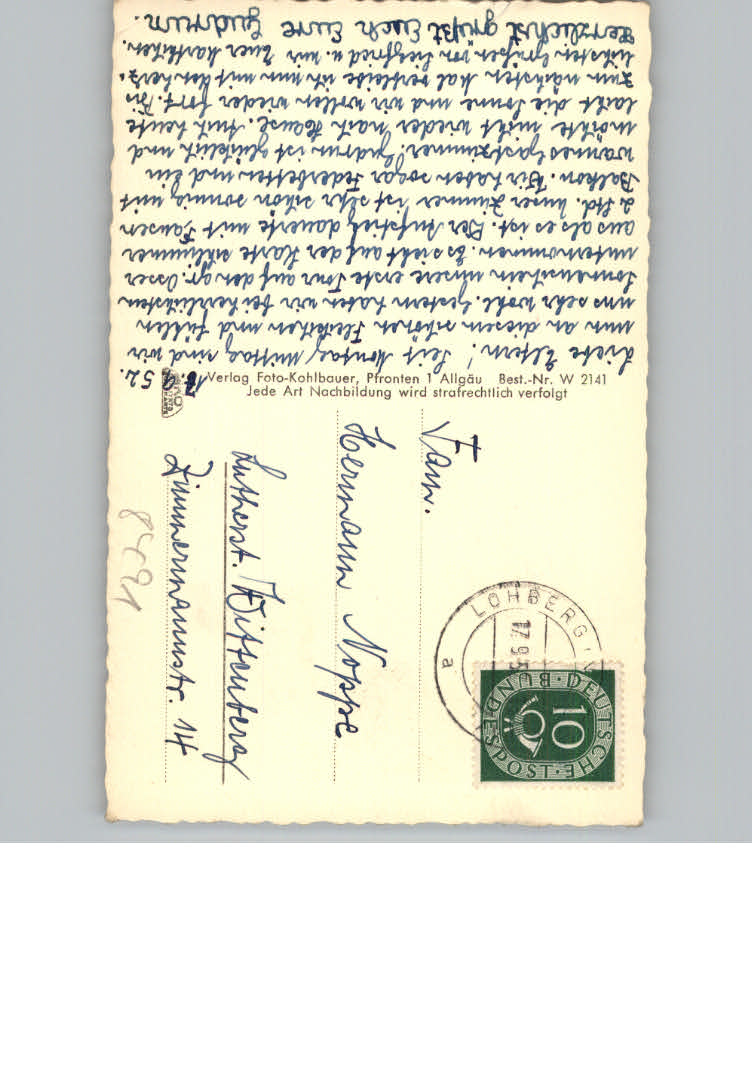 17.9.52.
Liebe Eltern! Seit Montag Mittag sind wir
nun an diesem schönen Fleckchen und fühlen
uns sehr wohl. Gestern haben wir bei herrlichstem
Sonnenschein unsere erste Tour auf den gr. Osser
unternommen. Es sieht auf der Karte schlimmer
aus als es ist. Der Aufstieg dauerte mit Pausen
2 Std. Unser Zimmer ist sehr schön sonnig mit
Balkon. Wir haben sogar Federbetten und ein
warmes Gastzimmer. Gudrun ist glücklich und
möchte nicht wieder nach Hause. Auch heute
lacht die Sonne und wir wollen wieder fort. Bis
zum nächsten Mal verbleibe ich nun mit den herz-
lichsten Grüßen von Siegfried u. mir Euer
Herzlichst grüßt Euch Eure Gudrun.
Verlag Foto-Kohlbauer, Pfronten 1 Allgäu Best.-Nr. W 2141
Jede Art Nachbildung wird strafrechtlich verfolgt
Fam.
Hermann Noppe
Lutherst. Wittenberg
Zimmermannstr. 14
8491
LOHBERG
17.9.5
a
DEUTSCHE BUNDESPOST
10